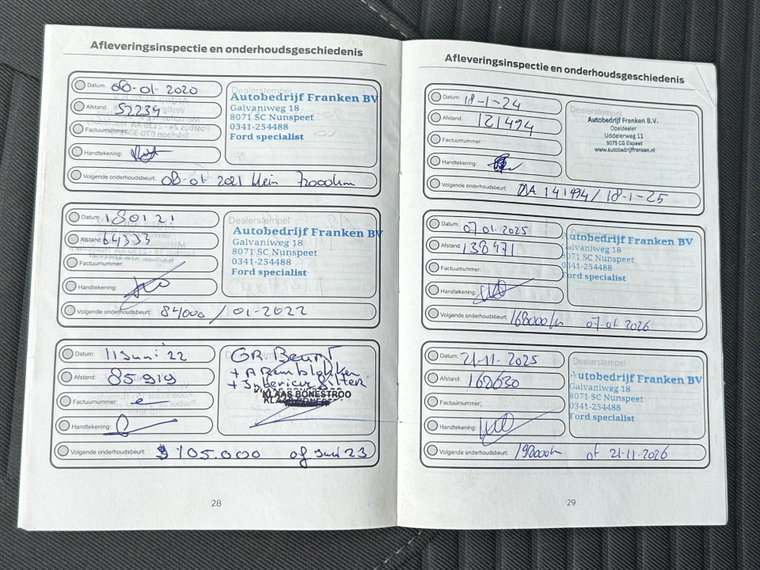 Afleveringsinspectie en onderhoudsgeschiedenis
Datum: 08-01 2020
Afstand: 52234
Factuurnummer:
Handtekening:
Dealerstempel
Autobedrijf Franken BV
Galvaniweg 18
8071 SC Nunspeet
0341-254488
Ford specialist
Volgende onderhoudsbeurt: 08-01 2021 klein 72000km
Datum: 18 01 21
Afstand: 64333
Factuurnummer:
Handtekening:
Dealerstempel
Autobedrijf Franken BV
Galvaniweg 18
8071 SC Nunspeet
0341-254488
Ford specialist
Volgende onderhoudsbeurt: 84000 / 01-2022
Datum: 11 Juni '22
Afstand: 85919
Factuurnummer:
Handtekening:
GR Beurt
+ A Remblokken
+ Interieur filter
KLAAS BONESTROO
Volgende onderhoudsbeurt: 105.000 of Juni 23
28
Afleveringsinspectie en onderhoudsgeschiedenis
Datum: 18-1-24
Afstand: 121494
Factuurnummer:
Handtekening:
Autobedrijf Franken B.V.
Opeldealer
Uddelerweg 11
8075 CG Elspeet
www.autobedrijffranken.nl
Volgende onderhoudsbeurt: 141494 / 18-1-25
Datum: 07 01 2025
Afstand: 138471
Factuurnummer:
Handtekening:
Autobedrijf Franken BV
Galvaniweg 18
8071 SC Nunspeet
0341-254488
Ford specialist
Volgende onderhoudsbeurt: 168000km 07 01 2026
Datum: 21-11-2025
Afstand: 162630
Factuurnummer:
Handtekening:
Dealerstempel
Autobedrijf Franken BV
Galvaniweg 18
8071 SC Nunspeet
0341-254488
Ford specialist
Volgende onderhoudsbeurt: 192000km of 21-11-2026
29